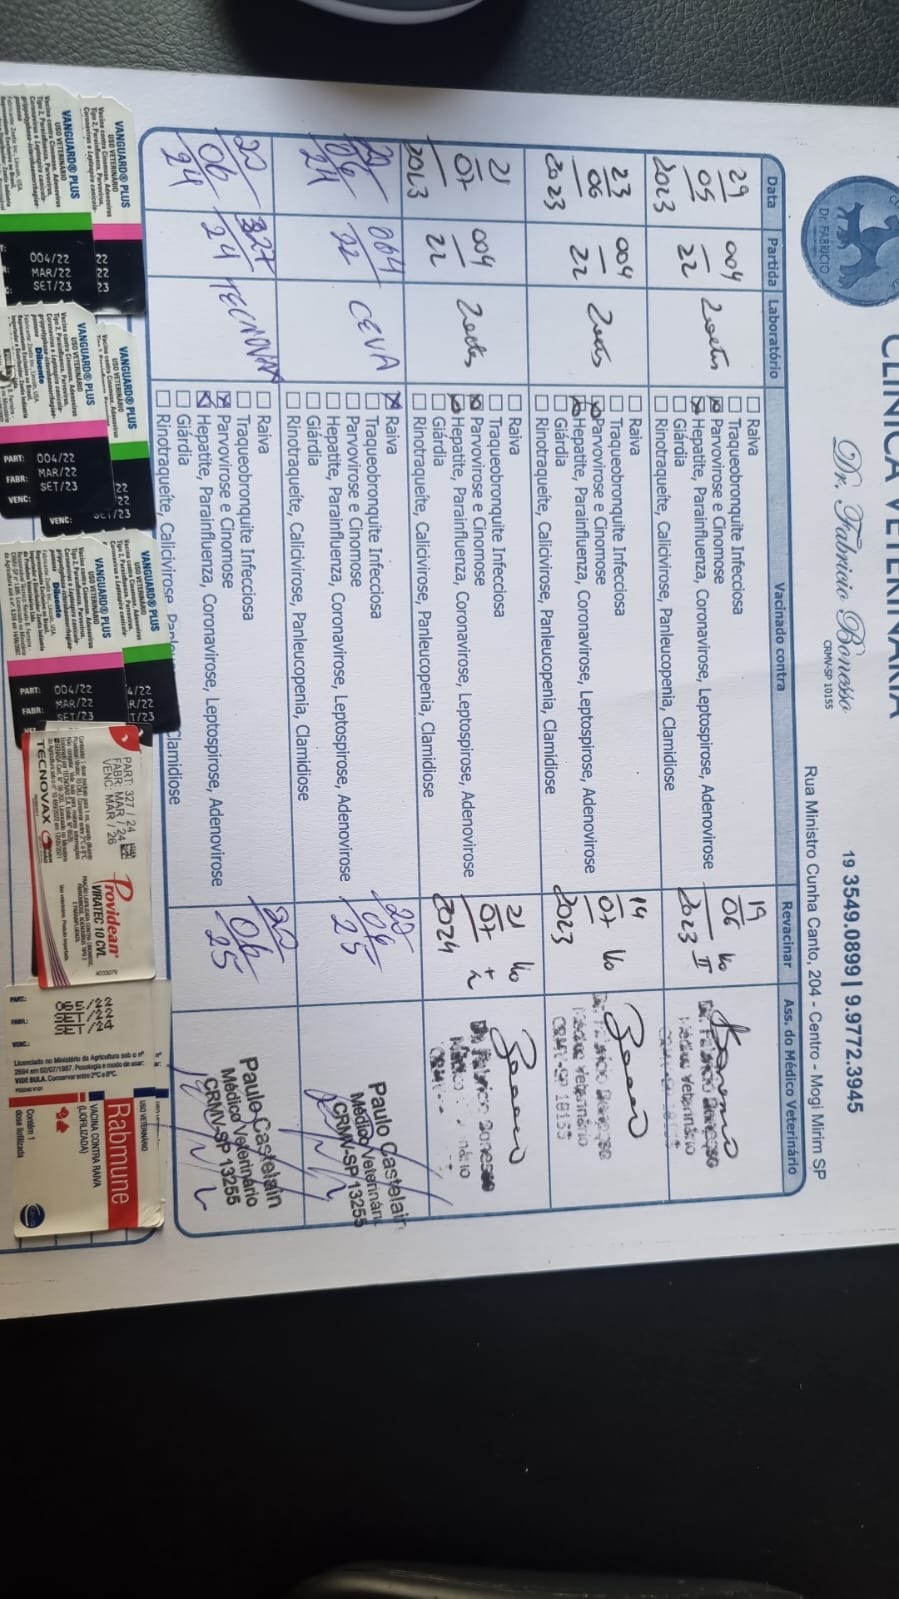 CLÍNICA VETERINÁRIA
Dr. Fabricio Bonesso
CRMV-SP 10155
Dr. FABRICIO
19 3549.0899 | 9.9772.3945
Rua Ministro Cunha Canto, 204 - Centro - Mogi Mirim SP
Data Partida Laboratório Vacinado contra Revacinar Ass. do Médico Veterinário
29/05/2023 004/22 Zoetis
Raiva
Traqueobronquite Infecciosa
Parvovirose e Cinomose
Hepatite, Parainfluenza, Coronavirose, Leptospirose, Adenovirose
Giárdia
Rinotraqueíte, Calicivirose, Panleucopenia, Clamidiose
19/06/2023
23/06/2023 004/22
Raiva
Traqueobronquite Infecciosa
Parvovirose e Cinomose
Hepatite, Parainfluenza, Coronavirose, Leptospirose, Adenovirose
Giárdia
Rinotraqueíte, Calicivirose, Panleucopenia, Clamidiose
14/07 2023
21/07/2023 004/22
Raiva
Traqueobronquite Infecciosa
Parvovirose e Cinomose
Hepatite, Parainfluenza, Coronavirose, Leptospirose, Adenovirose
Giárdia
Rinotraqueíte, Calicivirose, Panleucopenia, Clamidiose
21/07 2024
06/24 004/22 CEVA
Raiva
Traqueobronquite Infecciosa
Parvovirose e Cinomose
Hepatite, Parainfluenza, Coronavirose, Leptospirose, Adenovirose
Giárdia
Rinotraqueíte, Calicivirose, Panleucopenia, Clamidiose
25
Paulo Castelain
Médico Veterinário
CRMV-SP 13255
22/06/24 327/24 TECNOVAX
Raiva
Traqueobronquite Infecciosa
Parvovirose e Cinomose
Hepatite, Parainfluenza, Coronavirose, Leptospirose, Adenovirose
Giárdia
Rinotraqueíte, Calicivirose, Clamidiose
25
Paulo Castelain
Médico Veterinário
CRMV-SP 13255
VANGUARD® PLUS
USO VETERINÁRIO
22
22
23
VANGUARD® PLUS
USO VETERINÁRIO
004/22
MAR/22
SET/23
VANGUARD® PLUS
USO VETERINÁRIO
22
22
SET/23
VENC:
VANGUARD® PLUS
USO VETERINÁRIO
Diluente
PART: 004/22
FABR: MAR/22
VENC: SET/23
VANGUARD® PLUS
USO VETERINÁRIO
4/22
R/22
T/23
VANGUARD® PLUS
USO VETERINÁRIO
Diluente
PART: 004/22
FABR: MAR/22
SET/23
PART: 327 / 24
FABR: MAR / 24
VENC: MAR / 26
TECNOVAX
Providean®
VIRATEC 10 CVL
PART:
FABR:
VENC:
Licenciado no Ministério da Agricultura sob o nº
2594 em 02/07/1987. Posologia e modo de usar:
VIDE BULA. Conservar entre 2ºC e 8ºC.
USO VETERINÁRIO
Rabmune
VACINA CONTRA RAIVA
(LIOFILIZADA)
Contém 1
dose liofilizada
Ceva